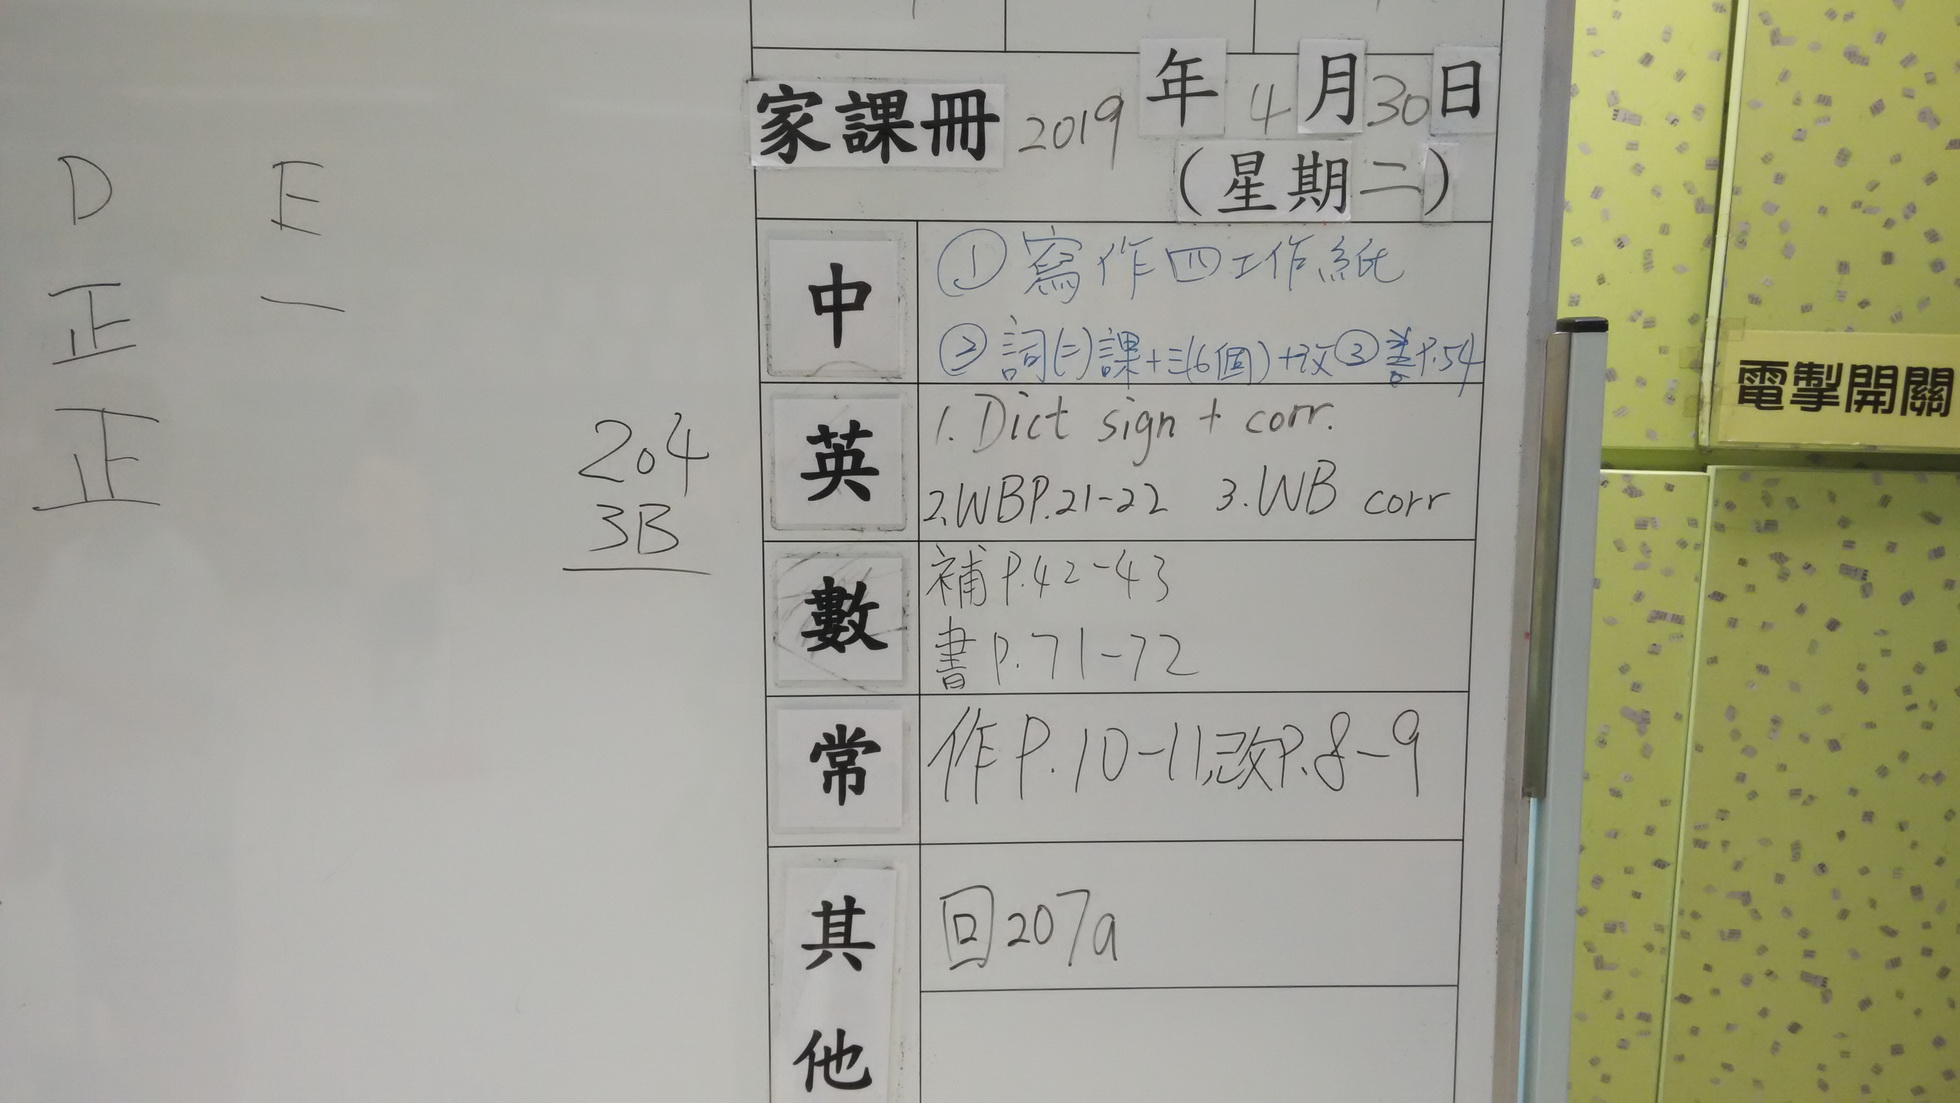 家課冊 2019年4月30日
(星期二)
D E
正 一
正
204
3B
中
① 寫作四工作紙
② 詞(二)課十三(6個)+改 ③ P.54
英
1. Dict sign + corr.
2. WBP.21-22 3. WB corr
數
補 P.42-43
書 P.71-72
常
作 P.10-11,改P.8-9
其他
回207a
電掣開關